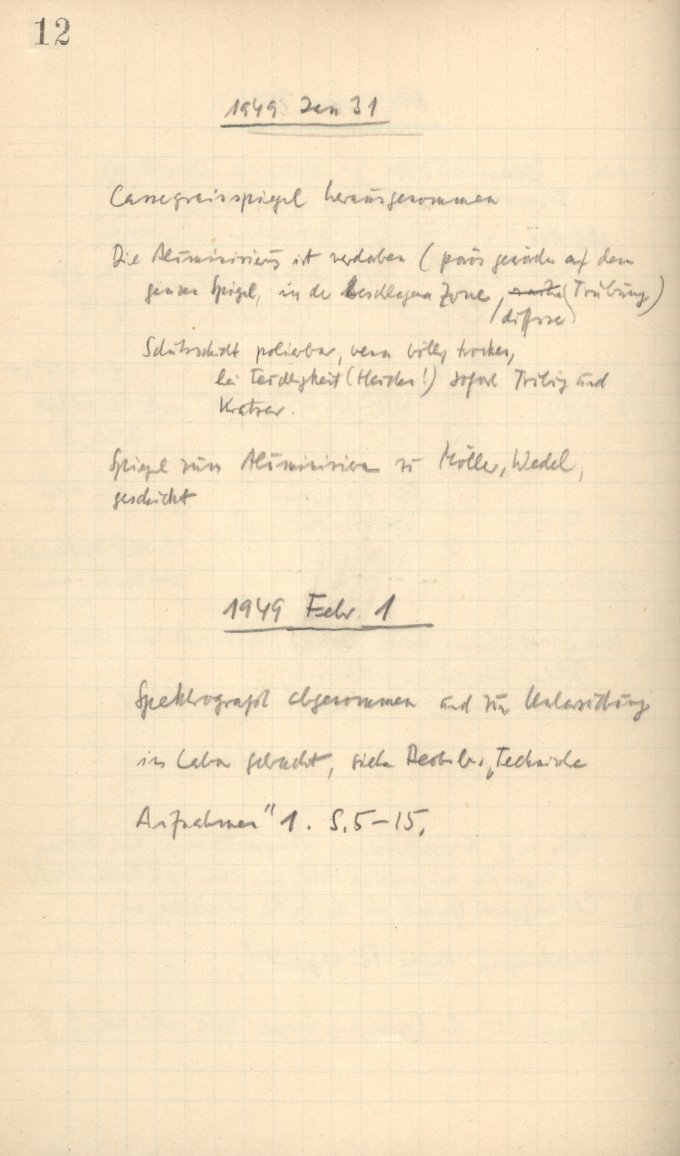 12
1949 Jan 31
Cassegrainspiegel herausgenommen
Die Aluminisierung ist verdorben ( porös geworden auf dem
ganzen Spiegel, in der beschlagenen Zone, (Trübung)
diffuse
Schutzschicht polierbar, wenn völlig trocken,
bei Feuchtigkeit (Hauchen!) sofort Trübung und
Kratzer.
Spiegel zum Aluminisieren zu Möller, Wedel,
geschickt
1949 Febr. 1
Spektrograph abgenommen und zur Untersuchung
ins Labor gebracht, siehe "Technische
Aufnahmen" 1. S. 5–15.